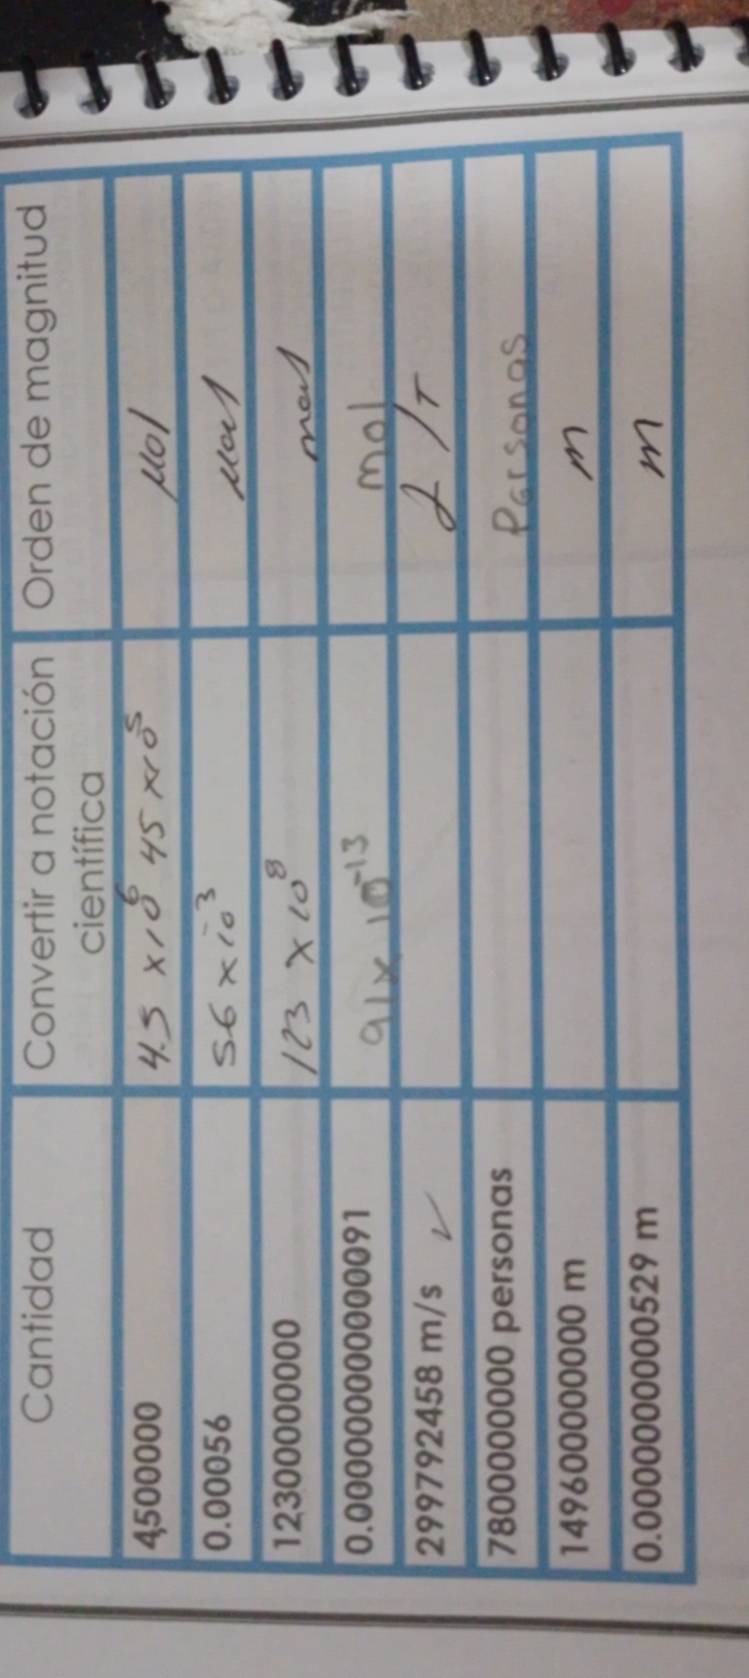 Cantidad Convertir a notación científica Orden de magnitud
4,500000 4.5 x10^6 45 x10^5 µol
0.00056 56 x10^-3
12300000000 123 x 10^8
0.0000000000000091 91x10^-13 mol
299792458 m/s ✓ L/T
7800000000 personas Personas
149600000000 m m
0.0000000000529 m m